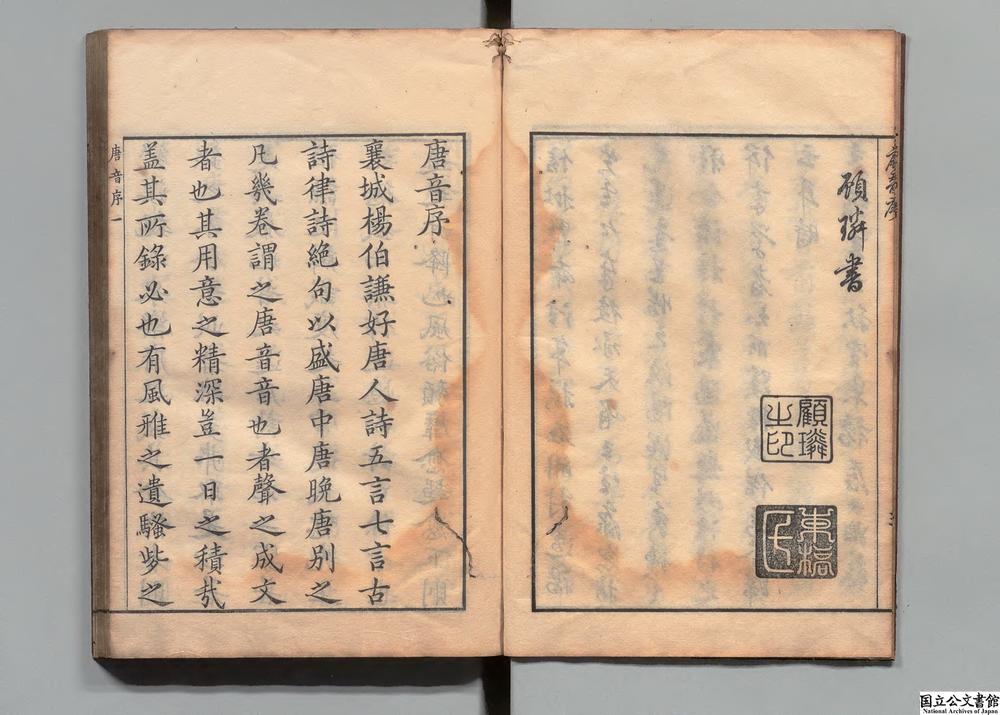 唐音序
顧璘書
顧璘之印
唐音序
襄城楊伯謙好唐人詩五言七言古
詩律詩絶句以盛唐中唐晩唐別之
凡幾卷謂之唐音音也者聲之成文
者也其用意之精深豈一日之積㢤
盖其所錄必也有風雅之遺騷些之
唐音序一
国立公文書館
National Archives of Japan